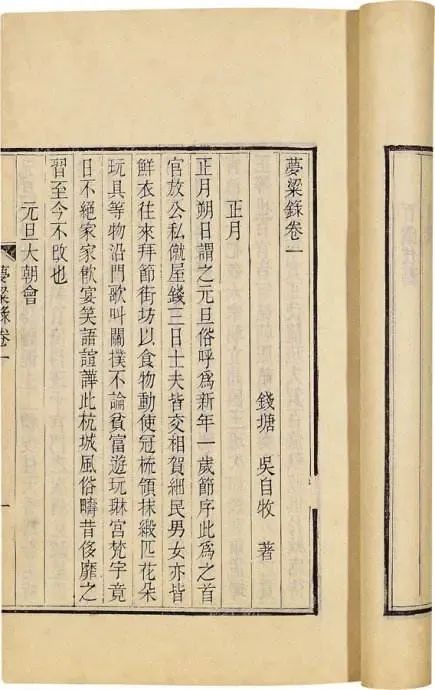 夢粱録卷一
錢塘 吳自牧 著
正月
正月朔日謂之元旦俗呼爲新年一歲節序此爲之首
官放公私僦屋錢三日士夫皆交相賀細民男女亦皆
鮮衣往來拜節街坊以食物動使冠梳領抹緞匹花朵
玩具等物沿門歌叫關撲不論貧富遊玩琳宮梵宇竟
日不絕家家飲宴笑語諠譁此杭城風俗疇昔侈靡之
習至今不改也
元旦大朝會
夢粱録卷一
一